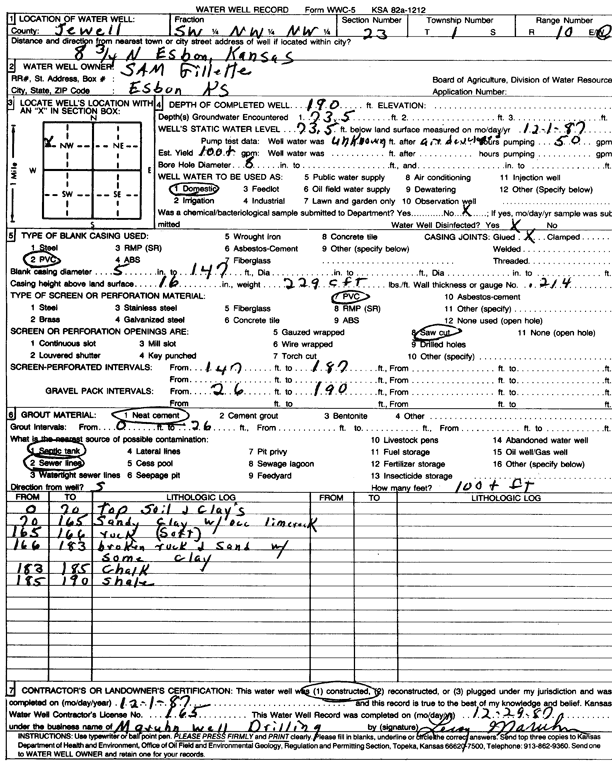 WATER WELL RECORD Form WWC-5 KSA 82a-1212
1 LOCATION OF WATER WELL: Fraction Section Number Township Number Range Number
County: Jewell SW ¼ NW ¼ NW ¼ 23 T 1 S R 10 E/W
Distance and direction from nearest town or city street address of well if located within city?
8 3/4 N Esbon, Kansas
2 WATER WELL OWNER: SAM Gillette
RR#, St. Address, Box # : Board of Agriculture, Division of Water Resource
City, State, ZIP Code : Esbon KS Application Number:
3 LOCATE WELL'S LOCATION WITH AN "X" IN SECTION BOX:
N
X NW NE
W E
SW SE
S
1 Mile
4 DEPTH OF COMPLETED WELL 190 ft. ELEVATION:
Depth(s) Groundwater Encountered 1. 73.5 ft. 2. ft. 3.
WELL'S STATIC WATER LEVEL 73.5 ft. below land surface measured on mo/day/yr 12-1-87
Pump test data: Well water was unknown ft. after hours pumping 50 gpm
Est. Yield 100+ gpm: Well water was ft. after hours pumping gpm
Bore Hole Diameter 8 in. to ft., and in. to
WELL WATER TO BE USED AS: 5 Public water supply 8 Air conditioning 11 Injection well
1 Domestic 3 Feedlot 6 Oil field water supply 9 Dewatering 12 Other (Specify below)
2 Irrigation 4 Industrial 7 Lawn and garden only 10 Observation well
Was a chemical/bacteriological sample submitted to Department? Yes No X ; If yes, mo/day/yr sample was sub
mitted Water Well Disinfected? Yes X No
5 TYPE OF BLANK CASING USED: 5 Wrought iron 8 Concrete tile CASING JOINTS: Glued X Clamped
1 Steel 3 RMP (SR) 6 Asbestos-Cement 9 Other (specify below) Welded
2 PVC 4 ABS 7 Fiberglass Threaded
Blank casing diameter 5 in. to 147 ft., Dia in. to ft., Dia in. to
Casing height above land surface 16 in., weight 229 cft lbs./ft. Wall thickness or gauge No. .214
TYPE OF SCREEN OR PERFORATION MATERIAL: 7 PVC 10 Asbestos-cement
1 Steel 3 Stainless steel 5 Fiberglass 8 RMP (SR) 11 Other (specify)
2 Brass 4 Galvanized steel 6 Concrete tile 9 ABS 12 None used (open hole)
SCREEN OR PERFORATION OPENINGS ARE: 5 Gauzed wrapped 8 Saw cut 11 None (open hole)
1 Continuous slot 3 Mill slot 6 Wire wrapped 9 Drilled holes
2 Louvered shutter 4 Key punched 7 Torch cut 10 Other (specify)
SCREEN-PERFORATED INTERVALS: From 147 ft. to 187 ft., From ft. to
From ft. to ft., From ft. to
GRAVEL PACK INTERVALS: From 26 ft. to 190 ft., From ft. to
From ft. to ft., From ft. to
6 GROUT MATERIAL: 1 Neat cement 2 Cement grout 3 Bentonite 4 Other
Grout Intervals: From 0 ft. to 26 ft., From ft. to ft., From ft. to
What is the nearest source of possible contamination: 10 Livestock pens 14 Abandoned water well
1 Septic tank 4 Lateral lines 7 Pit privy 11 Fuel storage 15 Oil well/Gas well
2 Sewer lines 5 Cess pool 8 Sewage lagoon 12 Fertilizer storage 16 Other (specify below)
3 Watertight sewer lines 6 Seepage pit 9 Feedyard 13 Insecticide storage
Direction from well? S How many feet? 100+ ft
FROM TO LITHOLOGIC LOG FROM TO LITHOLOGIC LOG
0 20 Top Soil & Clay's
20 165 Sandy Clay w/ occ limerock
165 166 rock (Soft)
166 183 broken rock & Sand w/
Some clay
183 185 Chalk
185 190 Shale
7 CONTRACTOR'S OR LANDOWNER'S CERTIFICATION: This water well was (1) constructed, (2) reconstructed, or (3) plugged under my jurisdiction and was
completed on (mo/day/year) 12-1-87 and this record is true to the best of my knowledge and belief. Kansas
Water Well Contractor's License No. 165 This Water Well Record was completed on (mo/day/yr) 12-29-87
under the business name of Maruhn Well Drilling by (signature) Leroy Maruhn
INSTRUCTIONS: Use typewriter or ball point pen. PLEASE PRESS FIRMLY and PRINT clearly. Please fill in blanks, underline or circle the correct answers. Send top three copies to Kansas
Department of Health and Environment, Office of Oil Field and Environmental Geology, Regulation and Permitting Section, Topeka, Kansas 66620-7500, Telephone: 913-862-9360. Send one
to WATER WELL OWNER and retain one for your records.